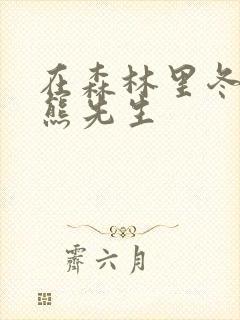 在森林里冬
熊先生
霽六月